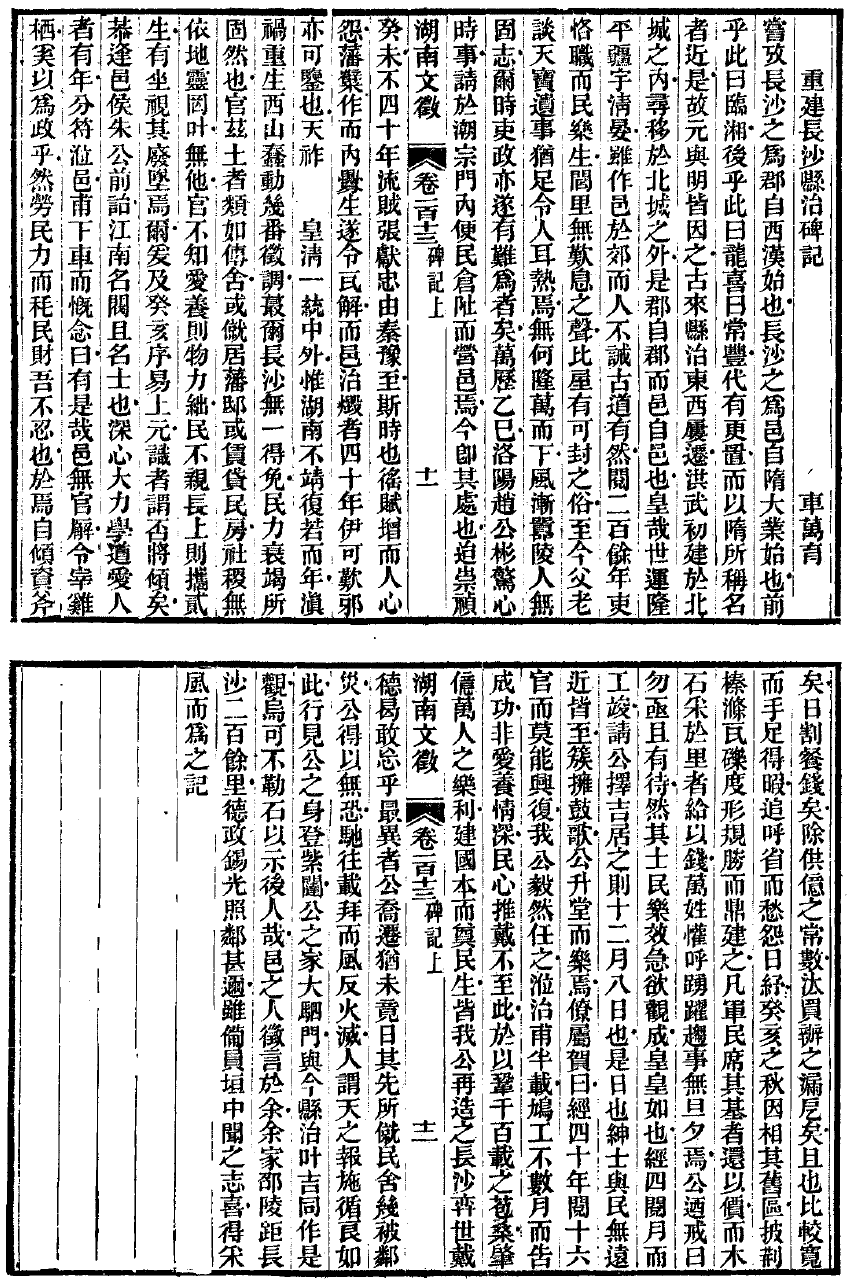 重建長沙縣治碑記 車萬育
嘗攷長沙之爲郡自西漢始也長沙之爲邑自隋大業始也前
乎此曰臨湘後乎此曰龍喜曰常豐代有更置而以隋所稱名
者近是故元與明皆因之古來縣治東西屢遷洪武初建於北
城之內尋移於北城之外是郡自郡而邑自邑也皇哉世運隆
平疆宇清晏雖作邑於郊而人不誡古道有然閱二百餘年吏
恪職而民樂生閭里無歎息之聲比屋有可封之俗至今父老
談天寶遺事猶足令人耳熱焉無何隆萬而下風漸囂陵人無
固志爾時吏政亦遂有難爲者矣萬歷乙巳洛陽趙公彬驚心
時事請於潮宗門內便民倉阯而營邑焉今卽其處也迫崇禎
湖南文徵 卷一百十三 碑記上 十一
癸未不四十年流賊張獻忠由秦豫至斯時也徭賦增而人心
怨藩櫱作而內釁生遂令瓦解而邑治燬者四十年伊可歎邪
亦可鑒也天祚 皇清一統中外惟湖南不靖復若而年滇
禍重生西山蠢動幾番徵調蕞爾長沙無一得免民力衰竭所
固然也官茲土者類如傳舍或僦居藩邸或賃貸民房社稷無
依地靈罔叶無他官不知愛養則物力絀民不親長上則攜貳
生有坐視其廢墜焉爾爰及癸亥序易上元識者謂否將傾矣
恭逢邑侯朱公前詒江南名閥且名士也深心大力學道愛人
者有年分符涖邑甫下車而慨念曰有是哉邑無官廨令宰雞
栖奚以爲政乎然勞民力而秏民財吾不忍也於焉自傾資斧
矣日割餐錢矣除供億之常數汰買辦之漏卮矣且也比較寬
而手足得暇追呼省而愁怨日紓癸亥之秋因相其舊區披荆
榛滌瓦礫度形規勝而鼎建之凡軍民席其基者還以價而木
石采於里者給以錢萬姓懽呼踴躍趨事無旦夕焉公迺戒曰
勿亟且有待然其士民樂效急欲觀成皇皇如也經四閱月而
工竣請公擇吉居之則十二月八日也是日也紳士與民無遠
近皆至簇擁鼓歌公升堂而樂焉僚屬賀曰經四十年閱十六
官而莫能興復我公毅然任之涖治甫半載鳩工不數月而告
成功非愛養情深民心推戴不至此於以鞏千百載之苞桑肇
億萬人之樂利建國本而奠民生皆我公再造之長沙奕世戴
湖南文徵 卷一百十三 碑記上 十二
德曷敢忘乎最異者公喬遷猶未竟日其先所僦民舍幾被鄰
災公得以無恐馳往載拜而風反火滅人謂天之報施循良如
此行見公之身登紫闥公之家大駟門與今縣治叶吉同作是
觀烏可不勒石以示後人哉邑之人徵言於余余家邵陵距長
沙二百餘里德政錫光照鄰甚邇雖備員垣中聞之志喜得采
風而爲之記